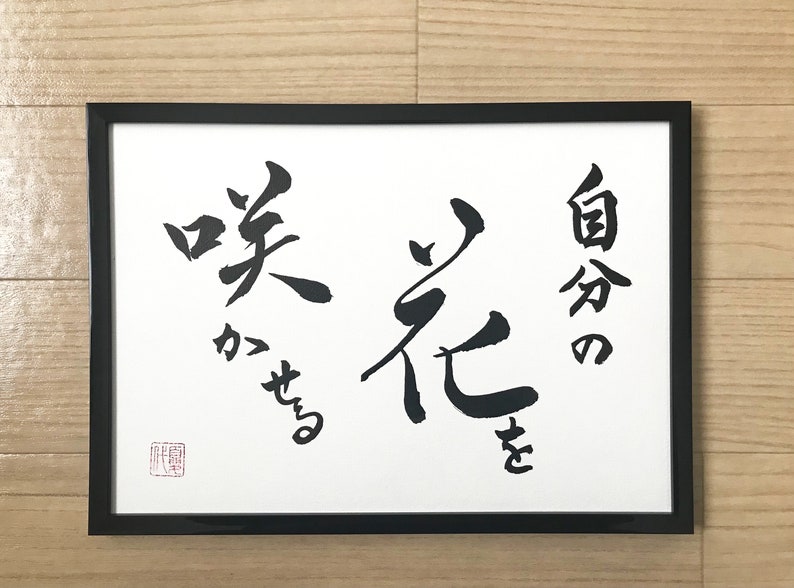 自分の
花を
咲かせる